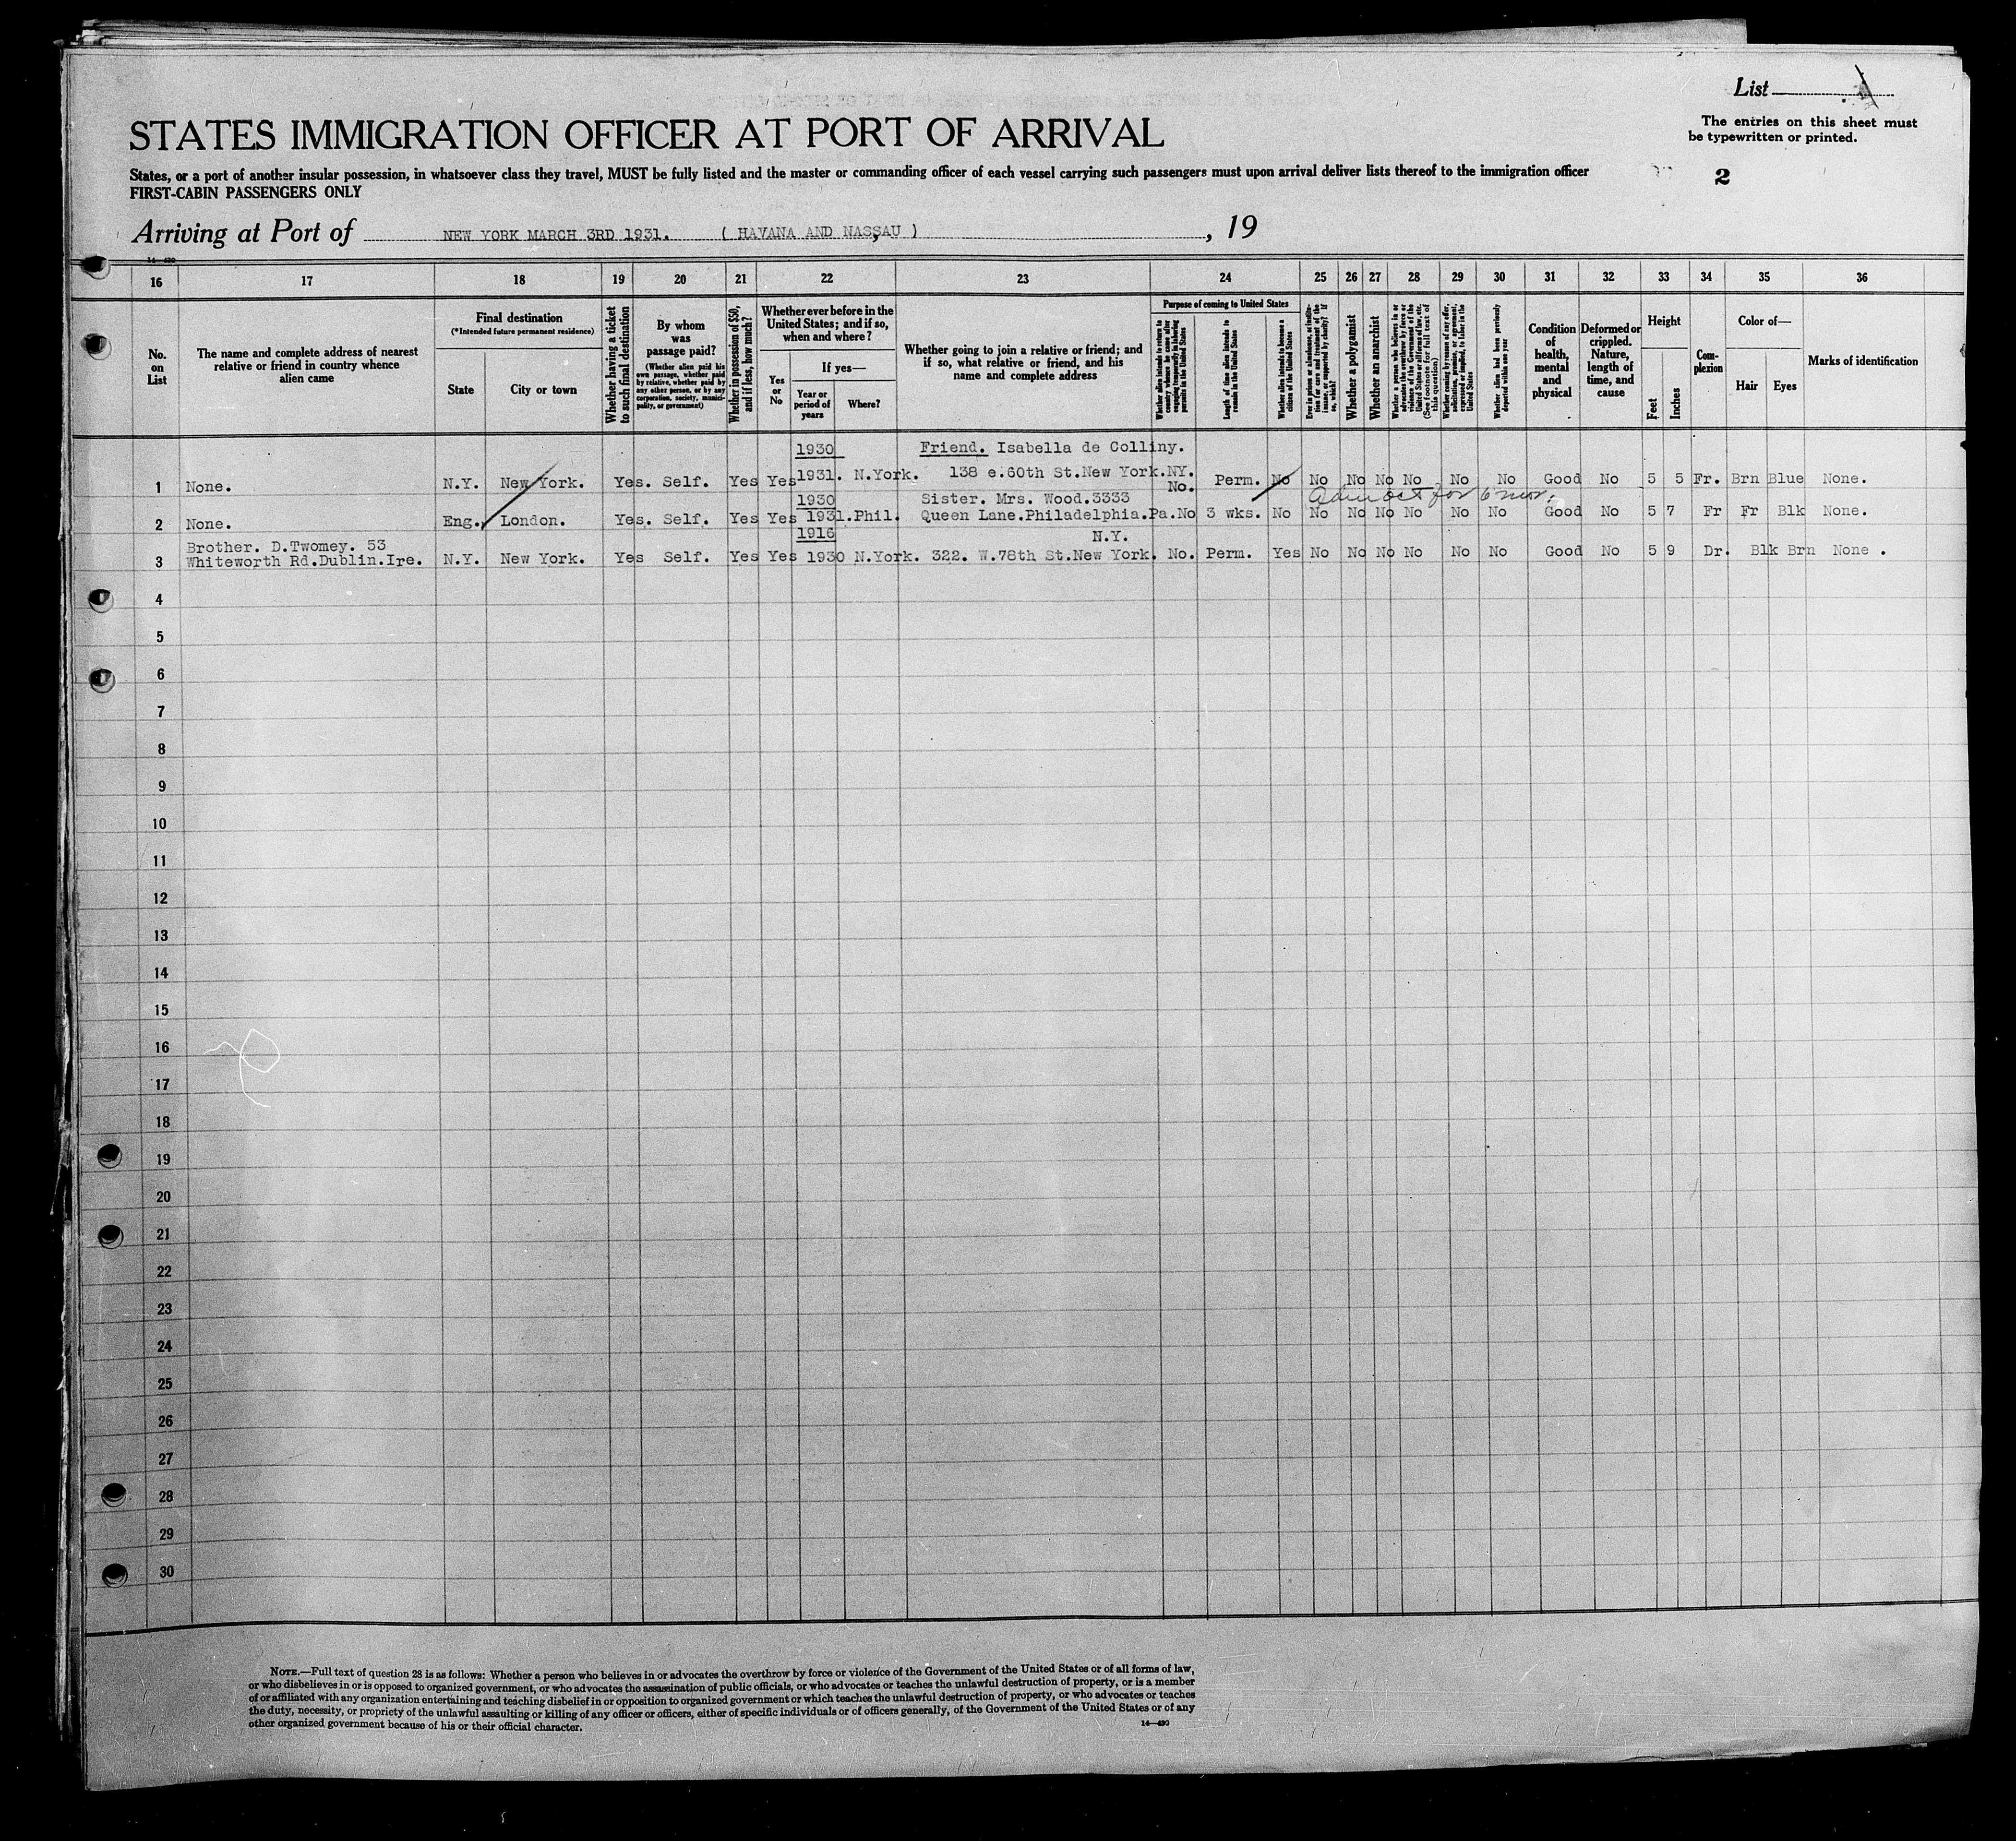 List
The entries on this sheet must
be typewritten or printed.
2
STATES IMMIGRATION OFFICER AT PORT OF ARRIVAL
States, or a port of another insular possession, in whatsoever class they travel, MUST be fully listed and the master or commanding officer of each vessel carrying such passengers must upon arrival deliver lists thereof to the immigration officer
FIRST-CABIN PASSENGERS ONLY
Arriving at Port of NEW YORK MARCH 3RD 1931. ( HAVANA AND NASSAU ) , 19
14—430
16 17 18 19 20 21 22 23 24 25 26 27 28 29 30 31 32 33 34 35 36
No. on List
The name and complete address of nearest relative or friend in country whence alien came
Final destination
(*Intended future permanent residence)
State
City or town
Whether having a ticket to such final destination
By whom was passage paid?
(Whether alien paid his own passage, whether paid by relative, whether paid by any other person, or by any corporation, society, municipality, or government)
Whether in possession of $50, and if less, how much?
Whether ever before in the United States; and if so, when and where?
Yes or No
If yes—
Year or period of years
Where?
Whether going to join a relative or friend; and if so, what relative or friend, and his name and complete address
Purpose of coming to United States
Whether alien intends to return to country whence he came after engaging temporarily in laboring pursuits in the United States
Length of time alien intends to remain in the United States
Whether alien intends to become a citizen of the United States
Ever in prison or almshouse, or institution for care and treatment of the insane, or supported by charity? If so, which?
Whether a polygamist
Whether an anarchist
Whether a person who believes in or advocates the overthrow by force or violence of the Government of the United States or all forms of law, etc. (See footnote for full text of this question)
Whether coming by reason of any offer, solicitation, promise, or agreement, expressed or implied, to labor in the United States
Whether alien had been previously deported within one year
Condition of health, mental and physical
Deformed or crippled. Nature, length of time, and cause
Height
Feet
Inches
Complexion
Color of—
Hair
Eyes
Marks of identification
1930 Friend. Isabella de Colliny.
1 None. N.Y. New York. Yes. Self. Yes Yes 1931. N.York. 138 e.60th St.New York.NY. No. Perm. No No No No No No No Good No 5 5 Fr. Brn Blue None.
1930 Sister. Mrs. Wood.3333 for 6 mos.
2 None. Eng. London. Yes. Self. Yes Yes 1931.Phil. Queen Lane.Philadelphia.Pa.No 3 wks. No No No No No No No Good No 5 7 Fr Fr Blk None.
1916 N.Y.
Brother. D.Twomey. 53
3 Whiteworth Rd.Dublin.Ire. N.Y. New York. Yes Self. Yes Yes 1930 N.York. 322. W.78th St.New York. No. Perm. Yes No No No No No No Good No 5 9 Dr. Blk Brn None .
4
5
6
7
8
9
10
11
12
13
14
15
16
17
18
19
20
21
22
23
24
25
26
27
28
29
30
NOTE.—Full text of question 28 is as follows: Whether a person who believes in or advocates the overthrow by force or violence of the Government of the United States or of all forms of law,
or who disbelieves in or is opposed to organized government, or who advocates the assassination of public officials, or who advocates or teaches the unlawful destruction of property, or is a member
of or affiliated with any organization entertaining and teaching disbelief in or opposition to organized government or which teaches the unlawful destruction of property, or who advocates or teaches
the duty, necessity, or propriety of the unlawful assaulting or killing of any officer or officers, either of specific individuals or of officers generally, of the Government of the United States or of any
other organized government because of his or their official character.
14—430